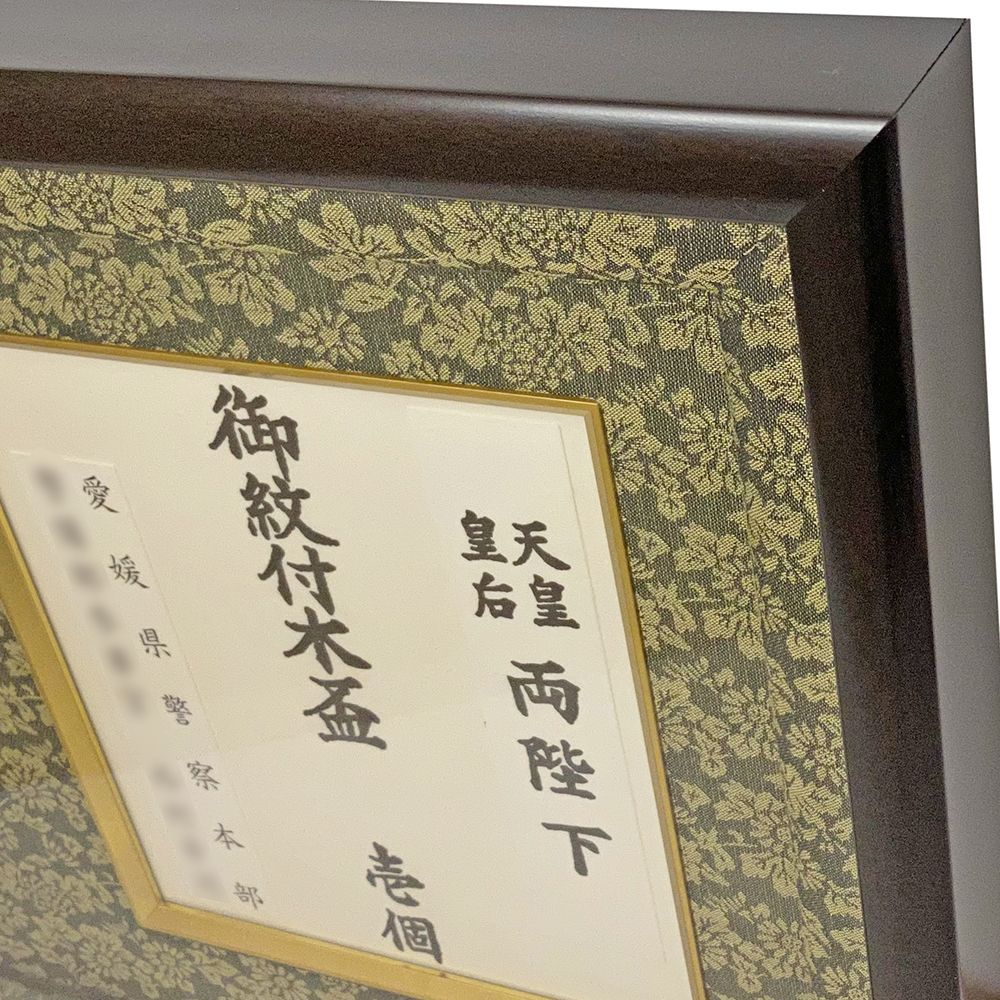 天皇
皇后
両陛下
御紋付木盃
壱個
愛媛県警察本部